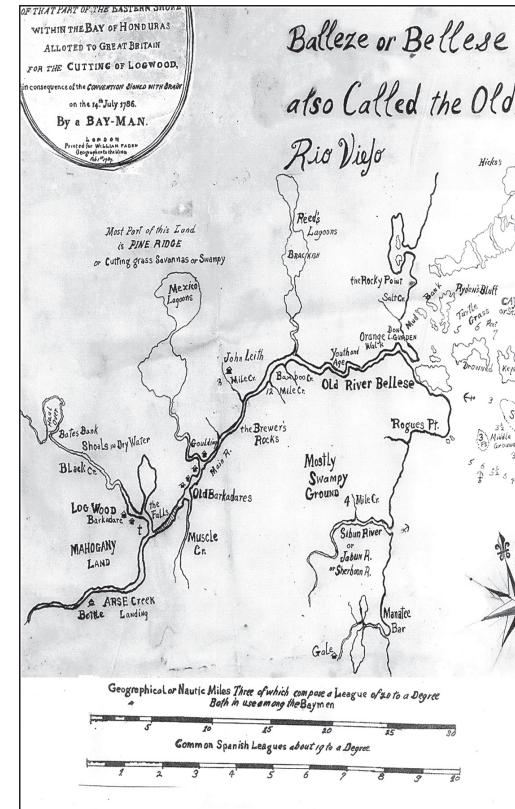 OF THAT PART OF THE EASTERN SHORE
WITHIN THE BAY OF HONDURAS
ALLOTED TO GREAT BRITAIN
FOR THE CUTTING OF LOGWOOD,
in consequence of the CONVENTION SIGNED WITH SPAIN
on the 14th July 1786.
By a BAY-MAN.
LONDON
Printed for WILLIAM FADEN
Geographer to the King
Balleze or Bellese
also Called the Old
Rio Viejo
Hicks's
Most Part of this Land
is PINE RIDGE
or Cutting grass Savannas or Swampy
Reed's
Lagoons
BRACKISH
Mexico
Lagoons
the Rocky Point
Salt Cr.
Mud Bank
Ryder's Bluff
Turtle
Grass
5 6 Feet
7
Orange
Walk
DON
L. GURDEN
Youth and
Age
John Leith
3 Mile Cr.
Bamboo Cr.
12 Mile Cr.
Old River Bellese
Drowned
Keys
Rogues Pt.
the Brewer's
Rocks
Goulding
Main R.
Bates Bank
Shoals in Dry Water
Black Cr.
Middle
Ground
Mostly
Swampy
Ground
Old Barkadares
the
Falls
LOGWOOD
Barkadare
4 Mile Cr.
Sibun River
or
Jabun R.
or Sherboon R.
MAHOGANY
LAND
Muscle
Cr.
ARSE Creek
Bottle Landing
Manatee
Bar
Gale
Geographical or Nautic Miles Three of which compose a League of 20 to a Degree
Both in use among the Baymen
5 10 15 20 25 30
Common Spanish Leagues about 19 to a Degree
1 2 3 4 5 6 7 8 9 10